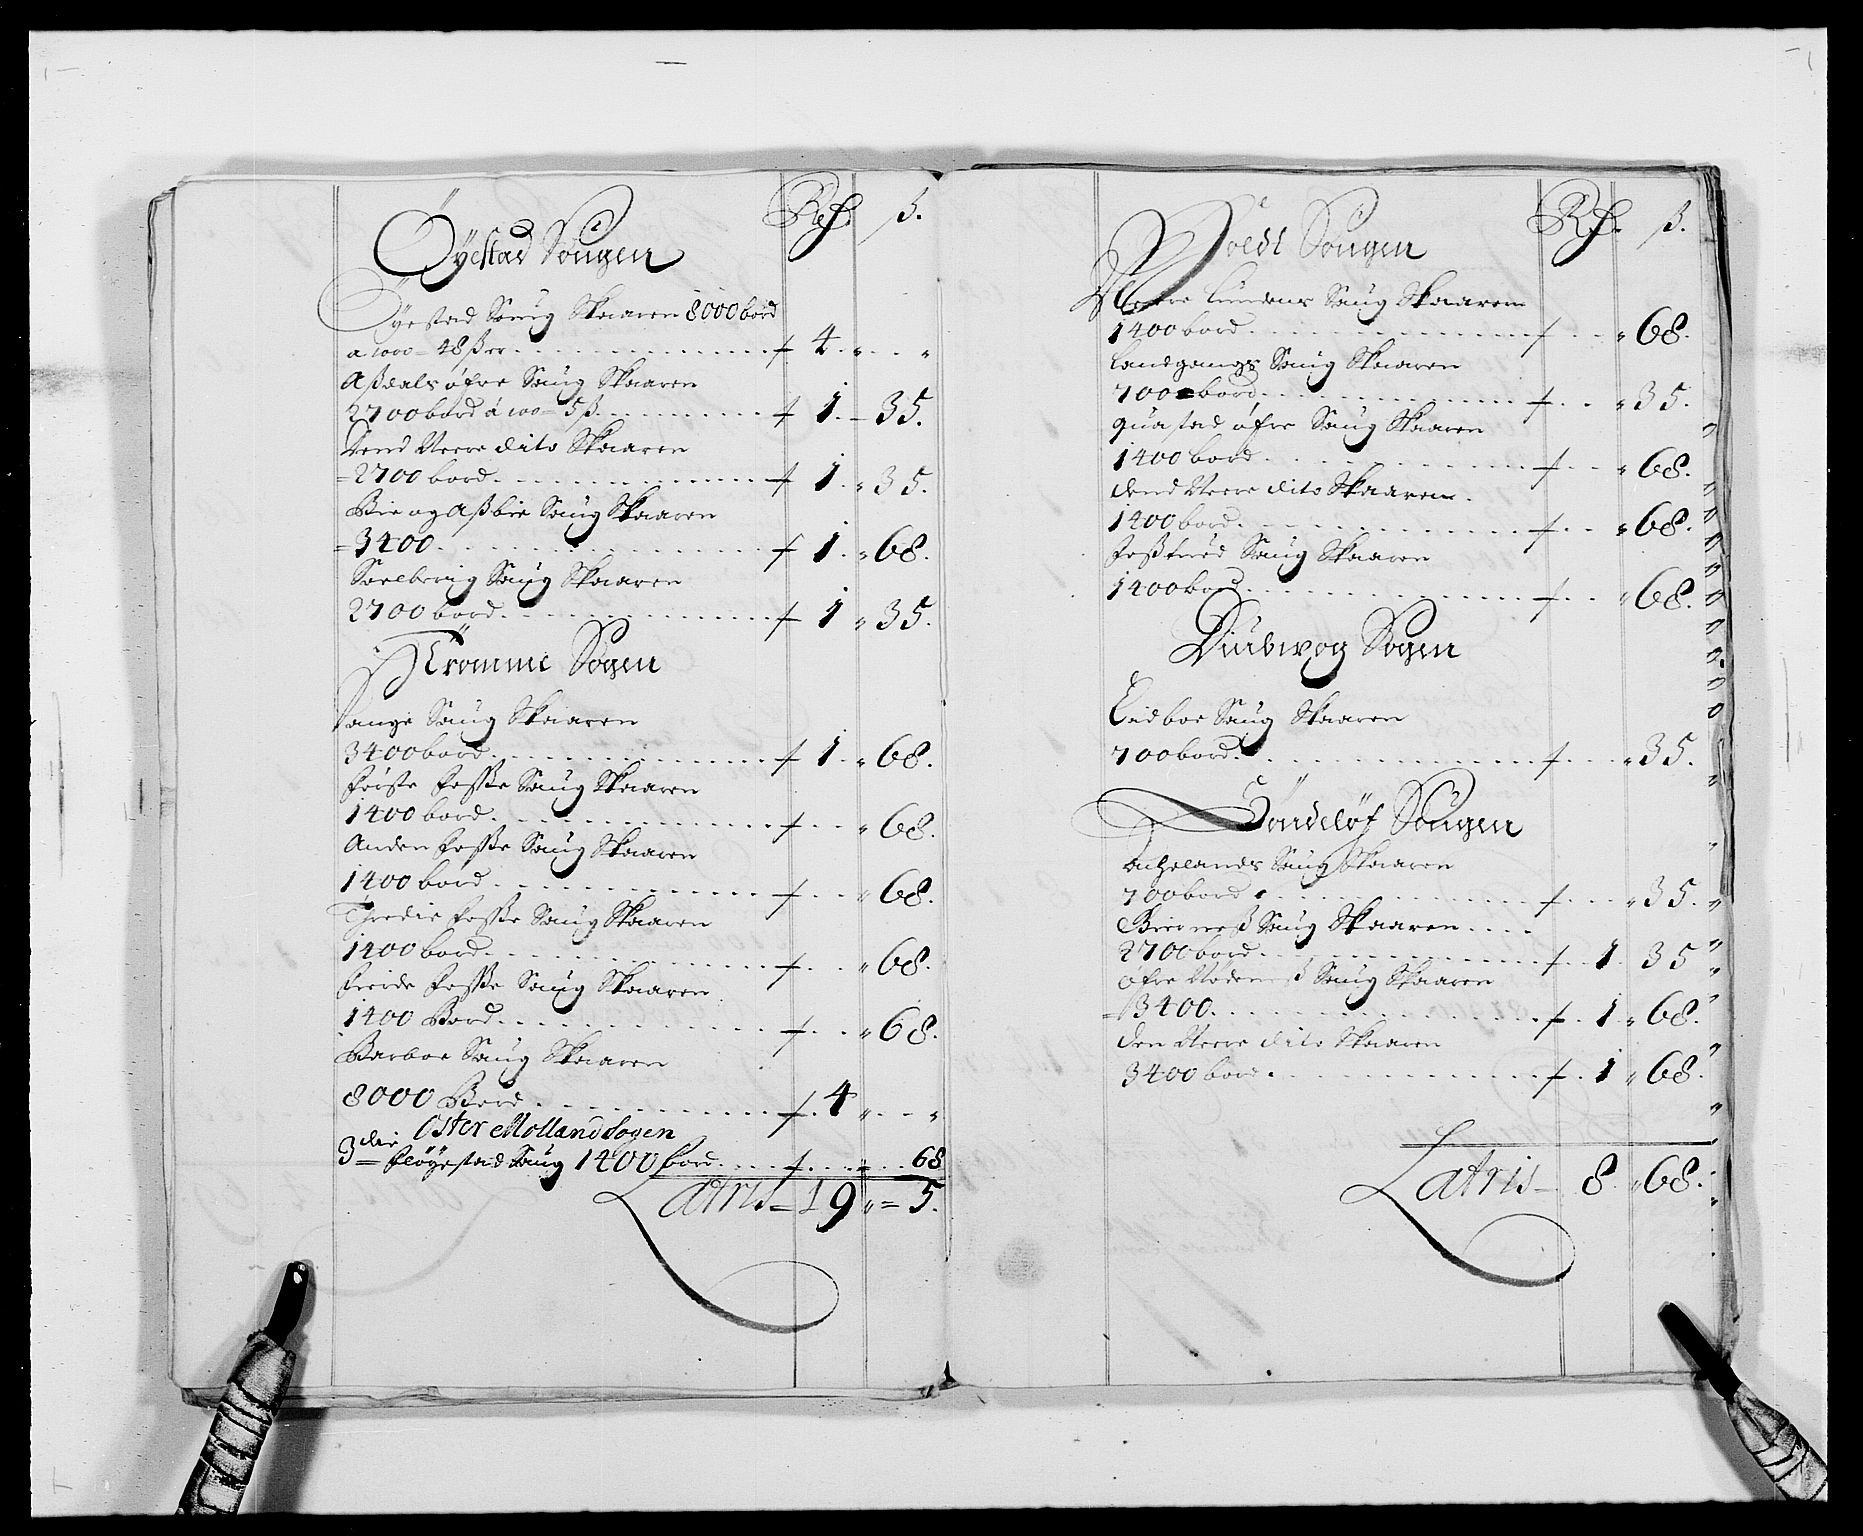 Rdr. ß.
Öyestad Sougen
Öyestad Saug Skaaren 8000 bord
a 1000 = 48 ßer . . . 4 " "
Aßdals öfre Saug Skaaren
2700 bord á 100 = 5 ß . . . 1 - 35.
Dend Nerre dito Skaaren
= 2700 bord . . . 1 " 35.
Bie og Aßbie Saug Skaaren
= 3400 . . . 1 " 68.
Saug Skaaren
2700 bord . . . 1 " 35.
Tromme Sogen
Vange Saug Skaaren
3400 bord . . . 1 " 68.
Förste Foßße Saug Skaaren
1400 bord . . . " 68.
Anden Foßße Saug Skaaren
1400 bord . . . " 68.
Thredie Foßße Saug Skaaren
1400 bord . . . " 68.
Fierde Foßße Saug Skaaren
1400 Bord . . . " 68.
Barboe Saug Skaaren
8000 Bord . . . 4 " "
Oster Molland Sogen
3die Flöyestad Saug 1400 bord . . . 68
Latris - 19 " = 5.
Rdr. ß.
Holdt Sougen
Saug Skaaren
1400 bord . . . " 68.
Landgangs Saug Skaaren
700 bord . . . " 35.
Quastad öfre Saug Skaaren
1400 bord . . . " 68.
Dend Nerre dito Skaaren.
1400 bord . . . " 68.
Saug Skaaren
1400 bord . . . " 68.
Diudwog Sogen
Eidboe Saug Skaaren
700 bord . . . " 35.
Söndelöf Sougen
Saug Skaaren
700 bord . . . " 35.
Saug Skaaren . . . .
2700 bord . . . 1 35
öfre Saug Skaaren
= 3400 . . . 1 " 68.
Den Nerre dito Skaaren
3400 bord . . . 1 " 68.
Latris - 8 " 68.